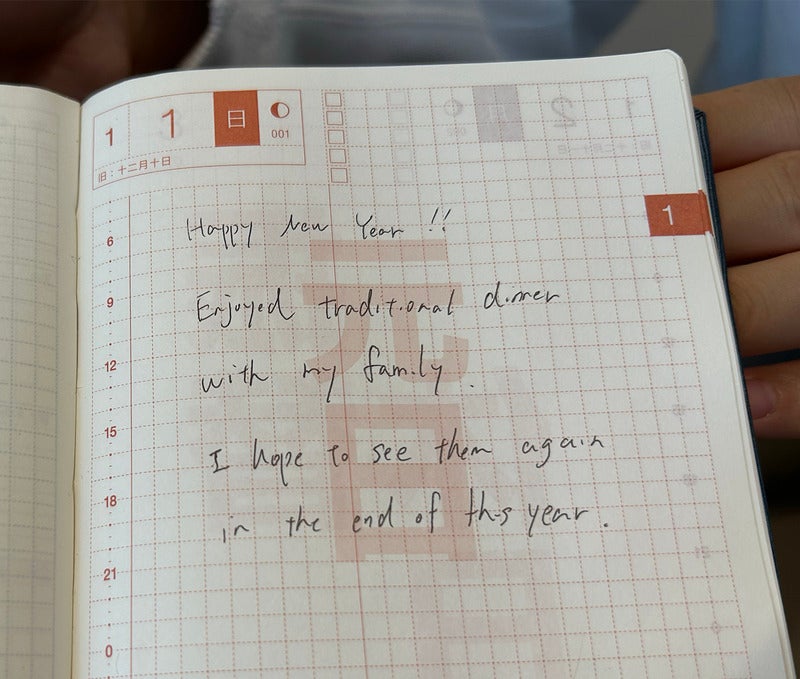 1 1 日
001
旧:十二月十日
1
元日
6
Happy New Year !!
9
Enjoyed traditional dinner
12
with my family.
15
I hope to see them again
18
in the end of this year.
21
0